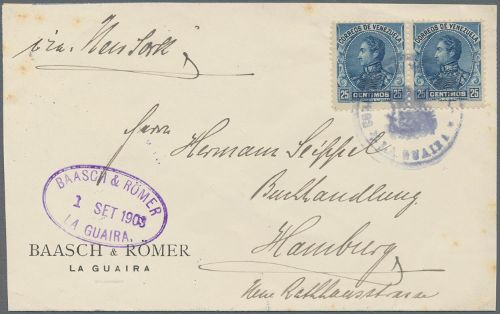 via New York
CORREOS DE VENEZUELA CORREOS DE VENEZUELA
25 25 25 25
CENTIMOS CENTIMOS
Herrn
Hermann Seippel
Buchhandlung
Hamburg
Neue Rathhausstrasse
BAASCH & RÖMER
1 SET 1903
LA GUAIRA.
BAASCH & RÖMER
LA GUAIRA